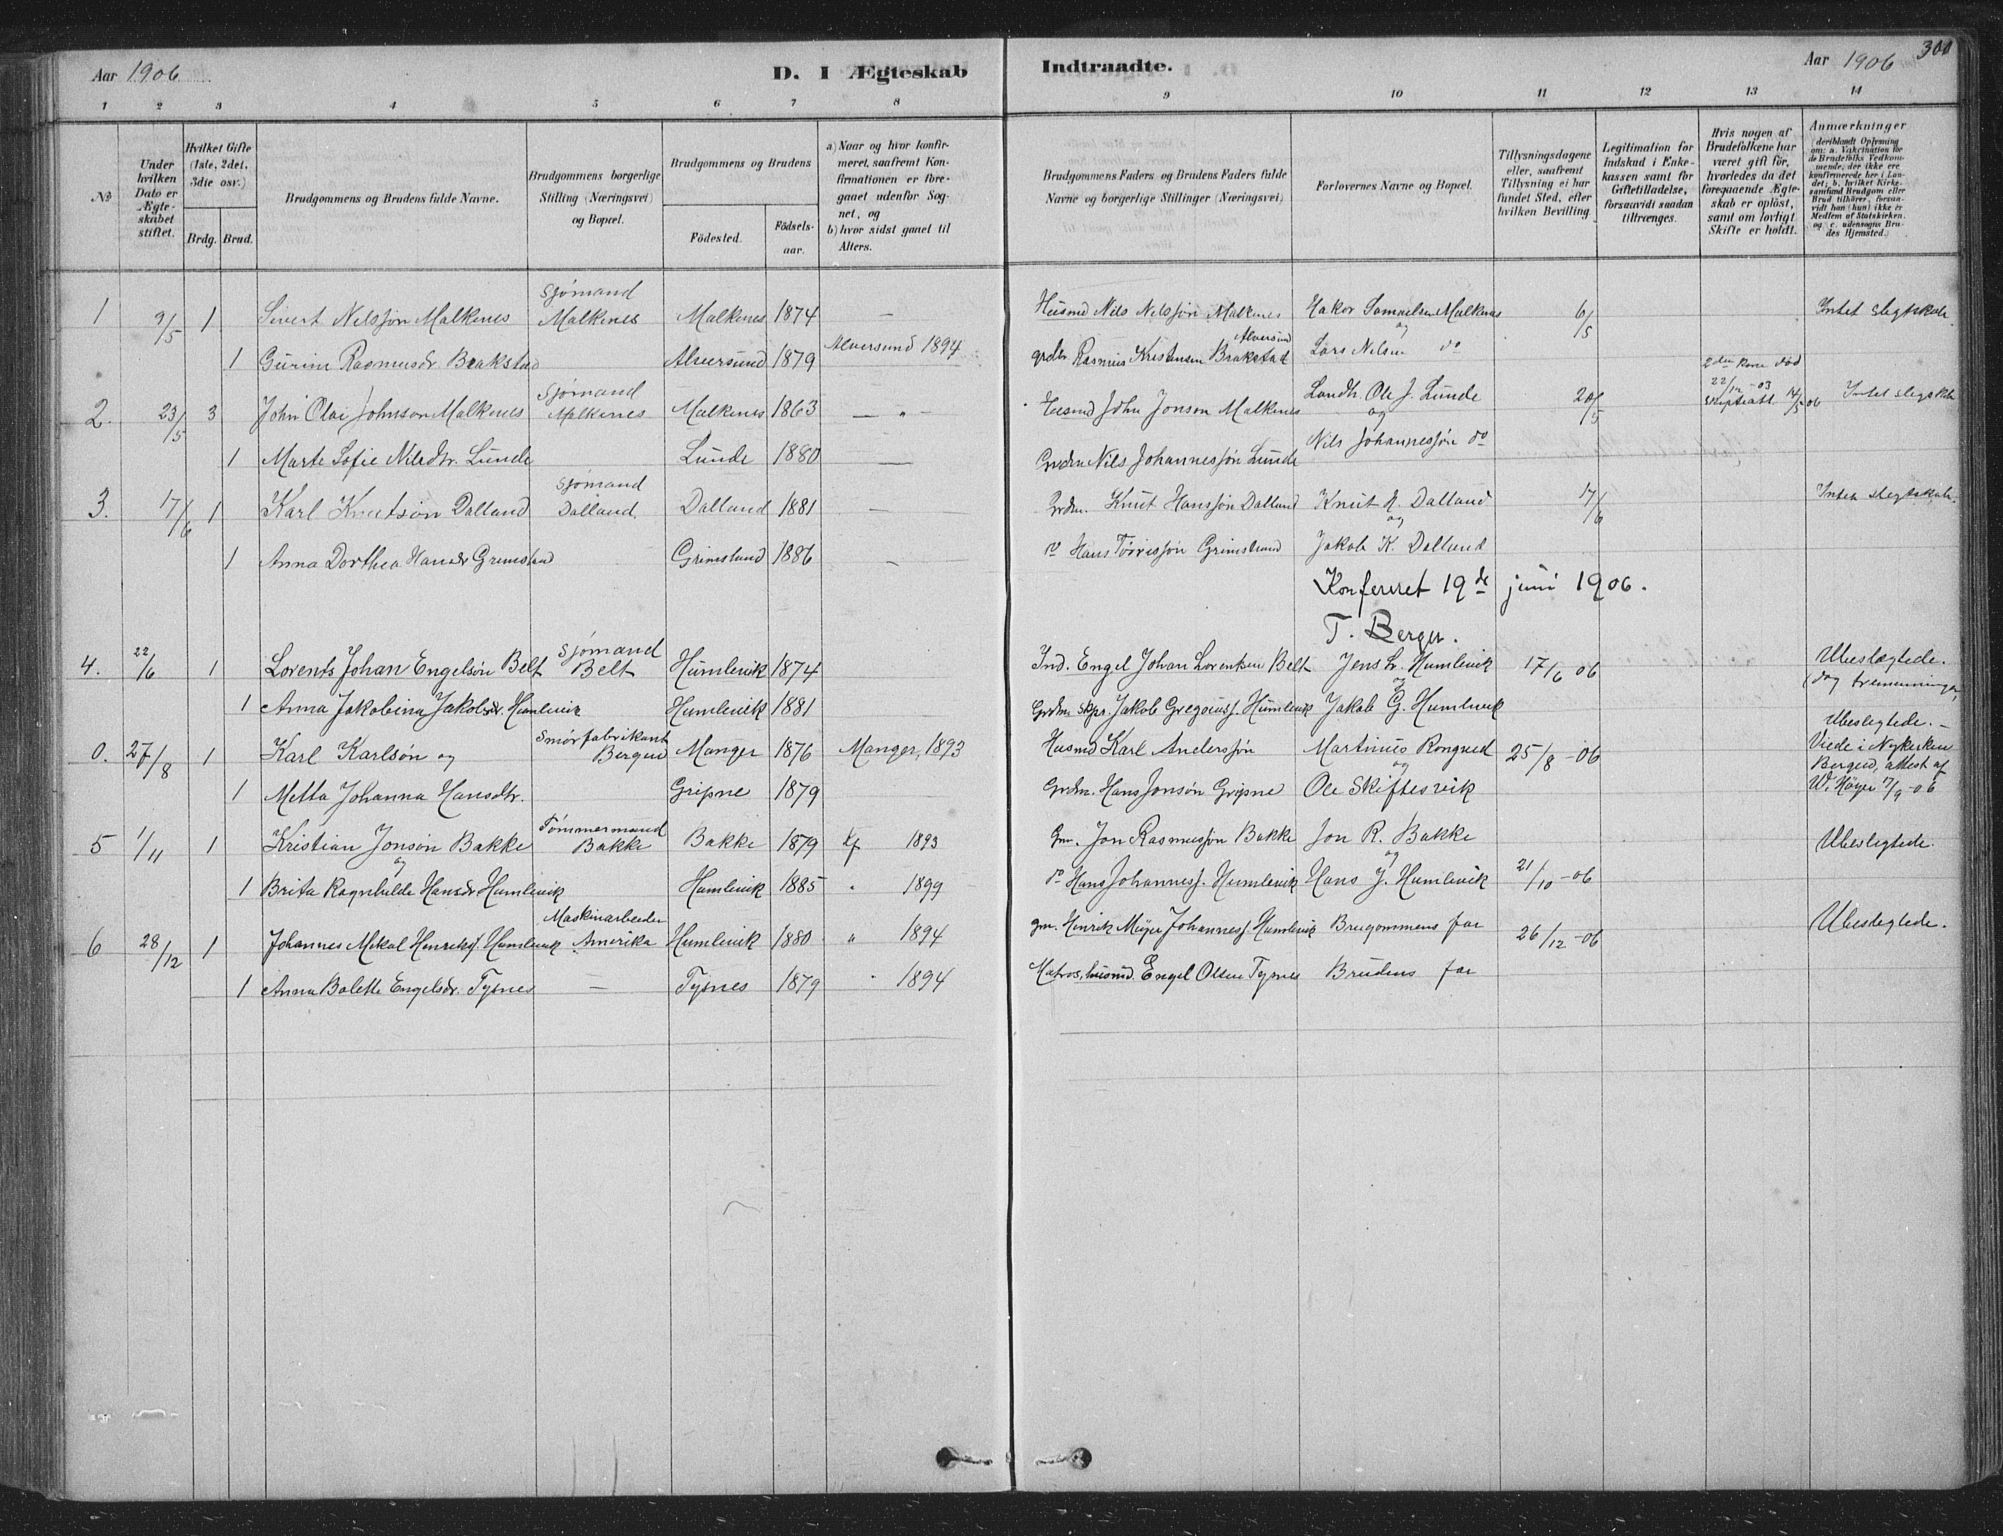 Aar 1906
D. I Ægteskab
Indtraadte.
Aar 1906
300
1 2 3 4 5 6 7 8 9 10 11 12 13 14
No
Under hvilken Dato er Ægteskabet stiftet.
Hvilket Gifte (1ste, 2det, 3die osv.)
Brdg. Brud.
Brudgommens og Brudens fulde Navne.
Brudgommens borgerlige Stilling (Næringsvei) og Bopæl.
Brudgommens og Brudens
Födested.
Födselsaar.
a) Naar og hvor konfirmeret, saafremt Konfirmationen er foregaaet udenfor Sognet, og
b) hvor sidst gaaet til Alters.
Brudgommens Faders og Brudens Faders fulde Navne og borgerlige Stillinger (Næringsvei)
Forlovernes Navne og Bopæl.
Tillysningsdagene eller, saafremt Tillysning ei har fundet Sted, efter hvilken Bevilling.
Legitimation for Indskud i Enkekassen samt for Giftetilladelse, forsaavidt saadan tiltrænges.
Hvis nogen af Brudefolkene har været gift för, hvorledes da det foregaaende Ægteskab er oplöst, samt om lovligt Skifte er holdt.
Anmærkninger (deriblandt Oplysning om: a. Vakcination for de Brudefolks Vedkommende, der ikke ere konfirmerede her i Landet; b. hvilket Kirkesamfund Brudgom eller Brud tilhörer, forsaavidt han (hun) ikke er Medlem af Statskirken, og c. udensogns Brudes Hjemsted.)
Sjømand
1 9/5 1 Sivert Nilssøn Malkenes Malkenes Malkenes 1874 — Husmd Nils Nilssøn Malkenes Hakor Samuelsen Malknes 6/5 Intet slegtskab.
og
Alversund
1 Gurine Rasmusdr. Brakstad Alversund 1879 Alversund 1894 grdbr Rasmus Kristensen Brakstad Lars Nilsen do
2den kone død 22/12 -03
Sjømand
2. 23/5 3 John Olai Johnson Malkenes Malkenes Malkenes 1863 — " — Husmd John Jonson Malkenes Landh. Ole J. Lunde 20/5 Skifteatt. 14/5 06 Intet slegtskab
og
1 Marte Sofie Nilsdtr. Lunde Lunde 1880 — Grdm Nils Johannessøn Lunde Nils Johannessøn do
Sjømand
3. 17/6 1 Karl Knutsøn Dalland Dalland Dalland 1881 — Grdm. Knut Hanssøn Dalland Knut H. Dalland 17/6 Intet slegtskab.
og
1 Anna Dorthea Hansdr Grimstad Grimstand 1886 — do Hans Tørrissøn Grimstand Jakob K. Dalland
Konfereret 19de juni 1906.
T. Berger.
Sjømand
4. 22/6 1 Lorents Johan Engelsøn Belt Belt Humlevik 1874 Ind. Engel Johan Lorentsen Belt Jens L. Humlevik 17/6 06 Ubeslægtede.
og
(dog tremenninger)
1 Anna Jakobina Jakobsdr. Humlevik Humlevik 1881 Grdm. skpr. Jakob Gregoriusj. Humlevik Jakob G. Humlevik
Smørfabrikant
Ubeslegtede. —
0. 27/8 1 Karl Karlsøn og Bergen Manger 1876 Manger, 1893 Husmd Karl Anderssøn Martinus Rongved 25/8 -06 Viede i Nykirken
og
Bergen, attest af
1 Metta Johanna Hansdtr. Gripne 1879 Grdm. Hans Jonsøn Gripne Ole Skiftesvik W. Høyer 17/9 -06
Tømmermand
5 1/11 1 Kristian Jonsøn Bakke Bakke Bakke 1879 Kf 1893 Gm. Jon Rasmussøn Bakke Jon R. Bakke Ubeslegtede.
og og
1 Brita Ragnhilde Hansdr Humlevik Humlevik 1885 " 1899 do Hans Johannesj. Humlevik Hans J. Humlevik 21/10 -06
Maskinarbeider
6 28/12 1 Johannes Mikal Henriksj. Humlevik Amerika Humlevik 1880 " 1894 gm. Henrik Meyer Johannesj. Humlevik Brugommens far 26/12 -06 Ubeslegtede.
1 Anna Bolette Engelsdr. Tysnes — Tysnes 1879 " 1894 Matros, husmd. Engel Olsen Tysnes Brudens far